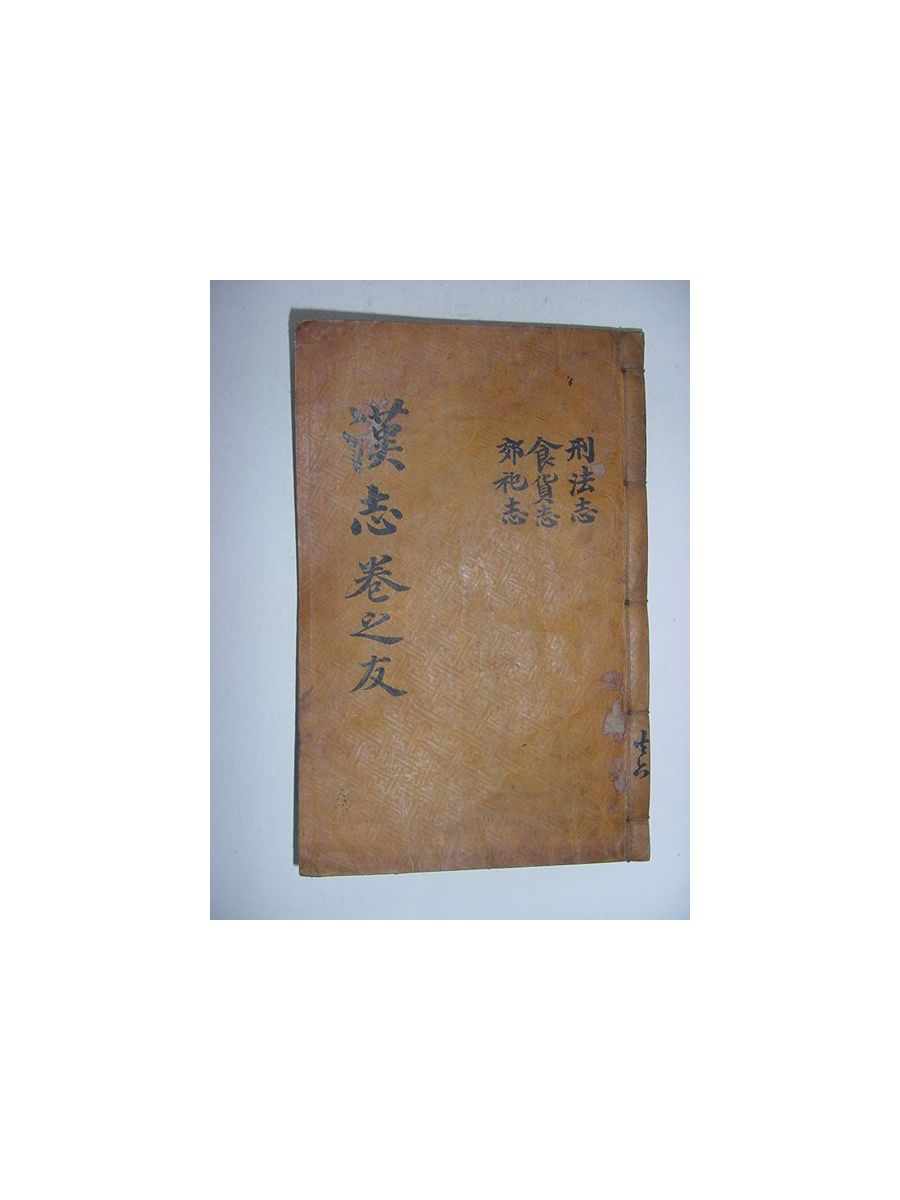 刑法志
食貨志
郊祀志
漢志卷之友
共六